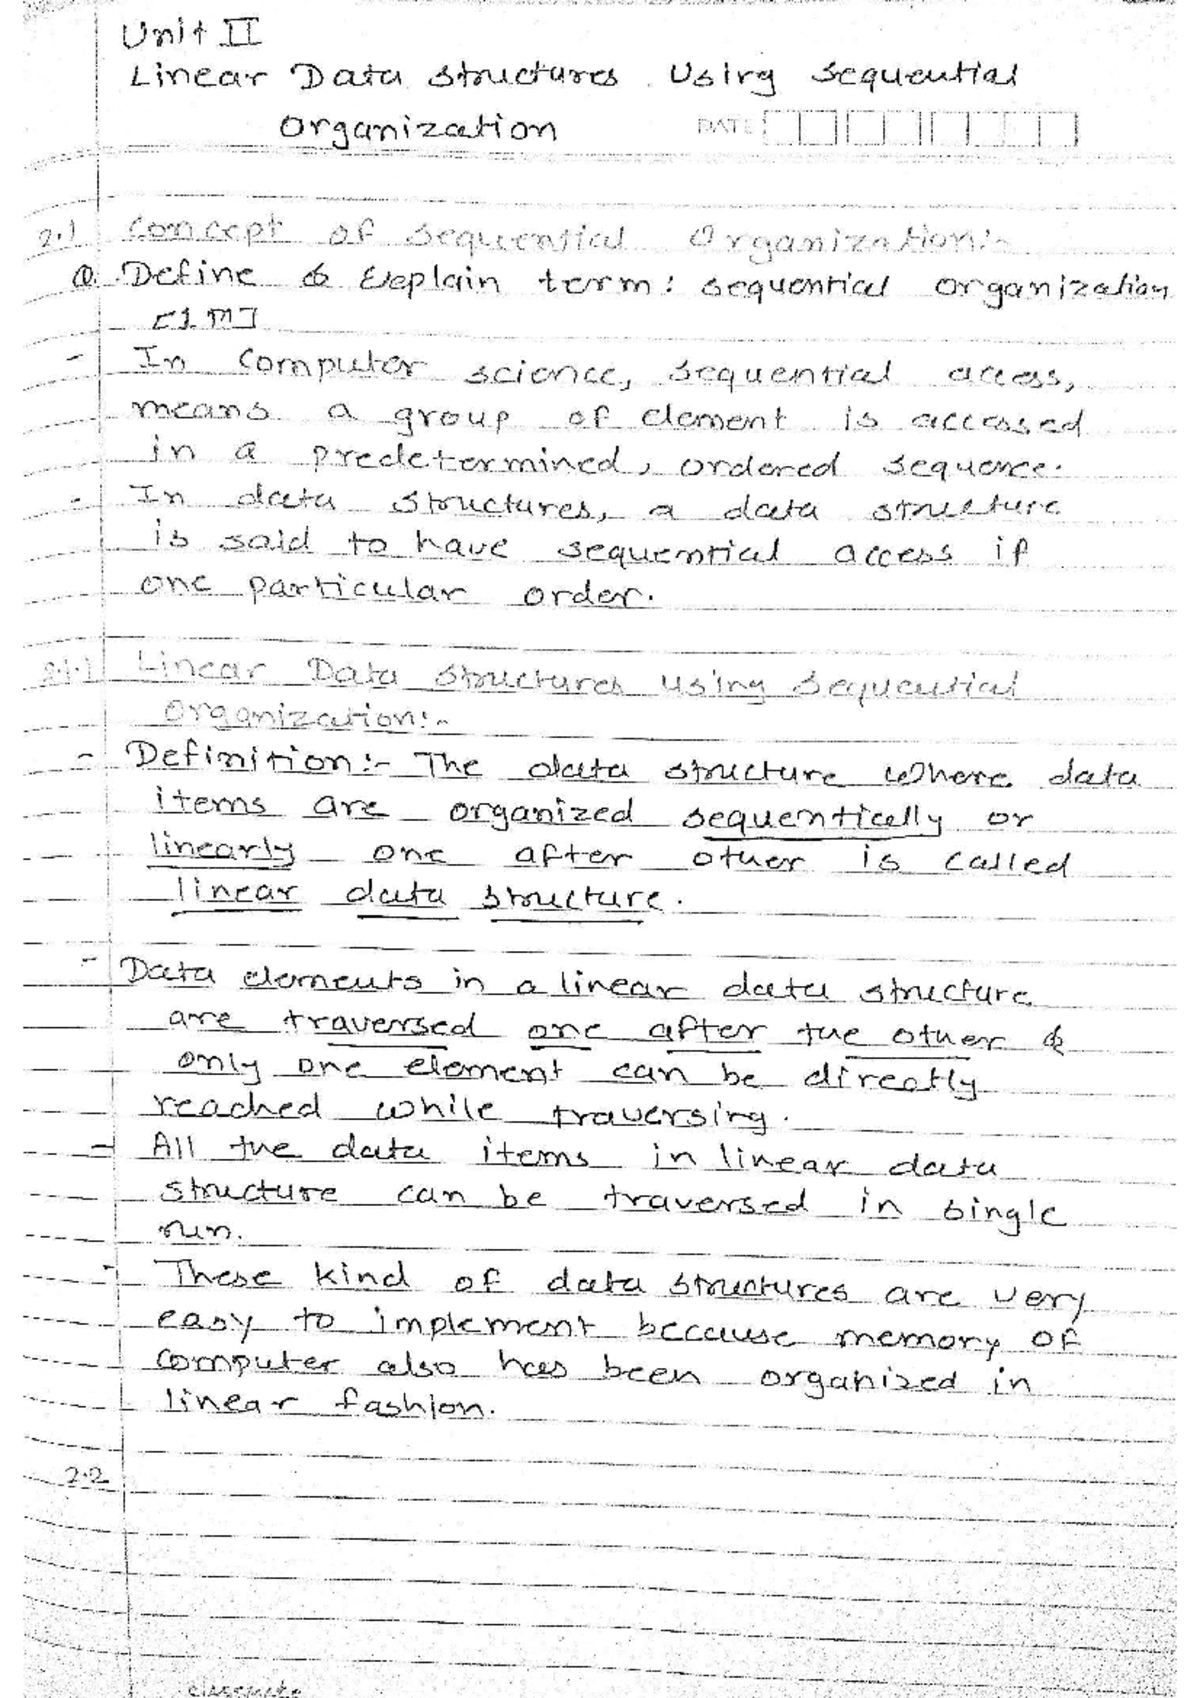 Unit II
Linear Data structures Using Sequential
Organization
DATE
2.1 Concept of Sequential Organization:-
Q. Define & Explain term: sequential organization
[1M]
- In Computer science, sequential access,
means a group of element is accessed
in a predetermined, ordered sequence.
- In data structures, a data structure
is said to have sequential access if
one particular order.
2.1.1 Linear Data structures using Sequential
Organization:-
- Definition:- The data structure where data
items are organized sequentically or
linearly one after other is called
linear data structure.
- Data elements in a linear data structure
are traversed one after the other &
only one element can be directly
reached while traversing.
- All the data items in linear data
structure can be traversed in single
run.
- These kind of data structures are very
easy to implement because memory of
computer also has been organized in
linear fashion.
2.2
classmate